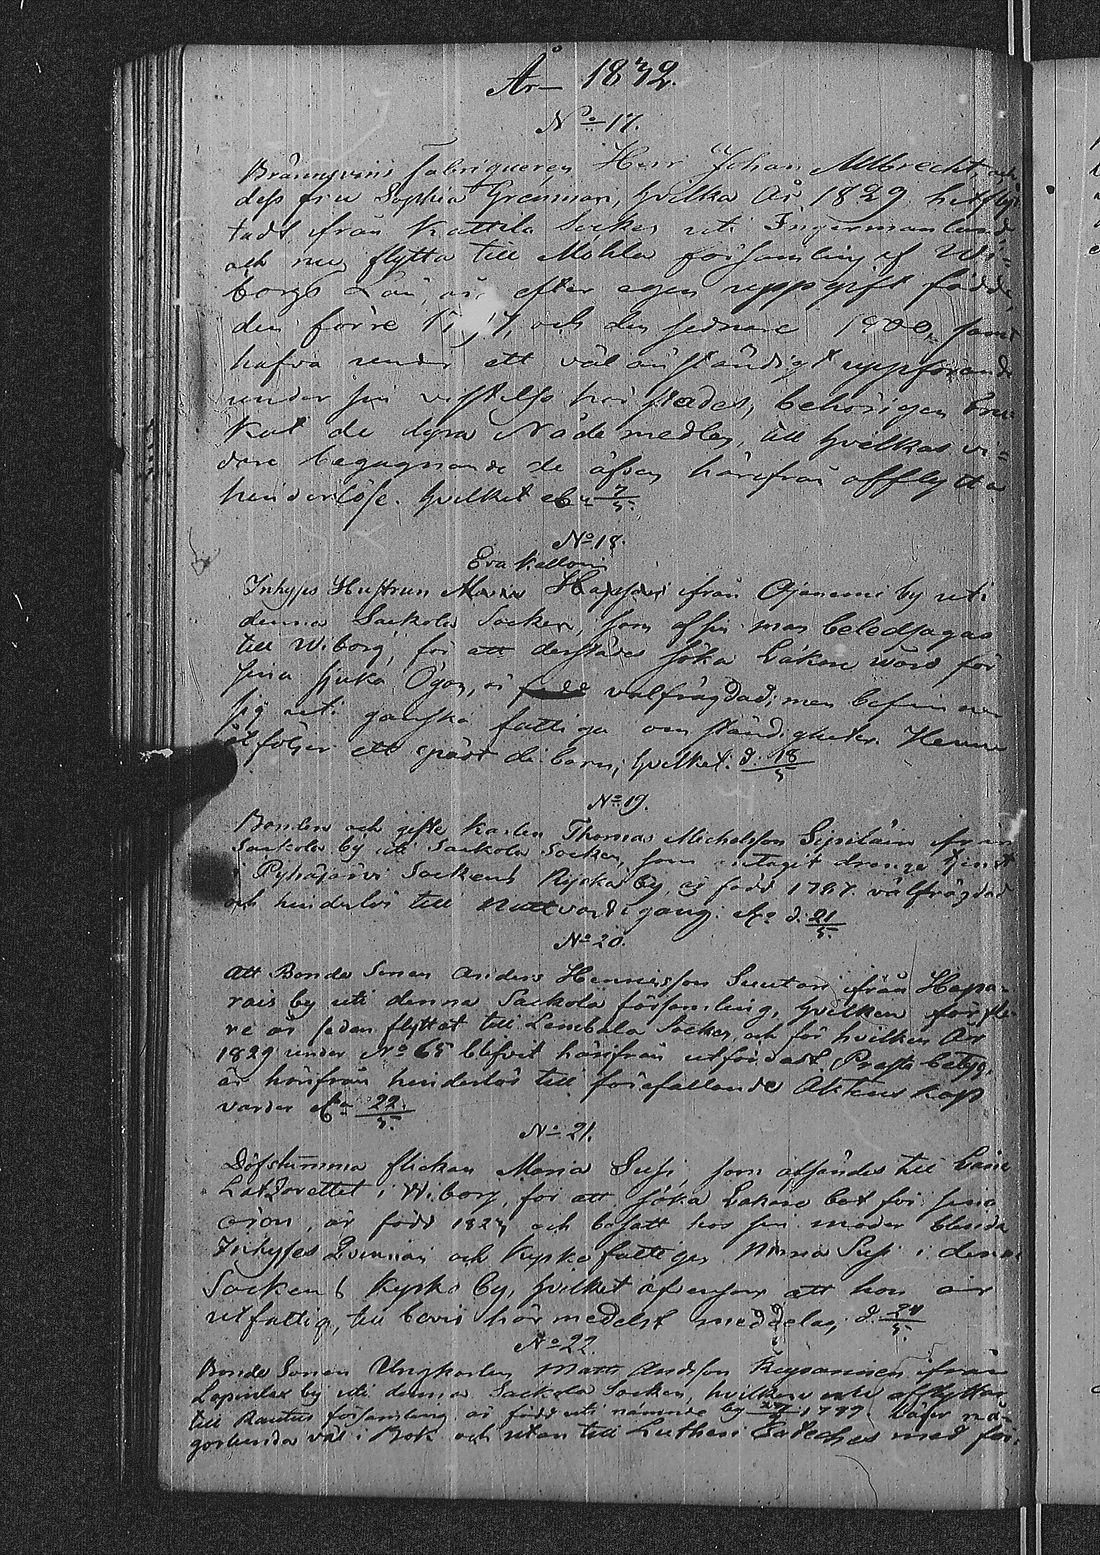 År 1832.
No 17.
Bränvins fabriqueren Herr Johan Albrecht och
dess fru Sophia Grenman, hvilka År 1829 hitflyt-
tadt från Kattila Socken uti Ingermanland,
och nu flytta till Mohla församling af Wi-
borgs Län, äro efter egen uppgift födde,
den förre och den sednare 1800, samt
hafva under ett väl anständigt uppförande
under sin vistelse här städes, behörigen bru-
kat de dyra Nådemedlen, till hvilkas vi-
dare begagnande de äfven härifrån afflytta
hinderlöse. hvilket 7/5.
No 18.
Eva Kallonin
Inhyses Hustrun Maria från Ojaniemi by uti
denna Sackola Socken, som af sin man beledsagas
till Wiborg, för att derstädes söka Läkare wård för
sina sjuka Ögon, är välfrägdad; men befinner
sig uti ganska fattiga omständigheter. Henne
åtföljer ett spädt di barn; hvilket d. 18/5
No 19.
Bonden och gifte Karlen Thomas Michelsson från
Sackola by uti Sackola Socken, som antagit drenge tjenst
i Pyhäjärvi Sockens by, är född 1787. välfrägdad
och hinderlös till Nattvardsgång. d. 21/5.
No 20.
Att Bonde Sonen Anders Hennesson från Hapa-
rais by uti denna Sackola församling, hvilken för fle-
re år sedan flyttat till Lembala Socken, och för hvilken År
1829 under No 65 blifvit härifrån utfärdadt Preste betyg,
är härifrån hinderlös till förefallande Äktenskap
varder 22/5.
No 21.
Döfstumma flickan Maria Susi, som afsändes till
Latzarettet i Wiborg, för att söka Läkare bot för sina
ögon, är född 1824 och besatt hos sin moder blinda
Inhyses Qvinnan och Kyrko fattiga Anna Susi i denna
Sockens by, hvilket äfvensom att hon är
utfattig, till bevis härmedelst meddelas, d. 24/5.
No 22.
Bonde Sonen Ungkarlen Matts Andsson från
by uti denna Sackola Socken, hvilken nu afflyttar
till Rautus församling är född uti nämnde by 1799 Läser nå-
gorlunda väl i Bok och utan till Lutheri Cateches med för-